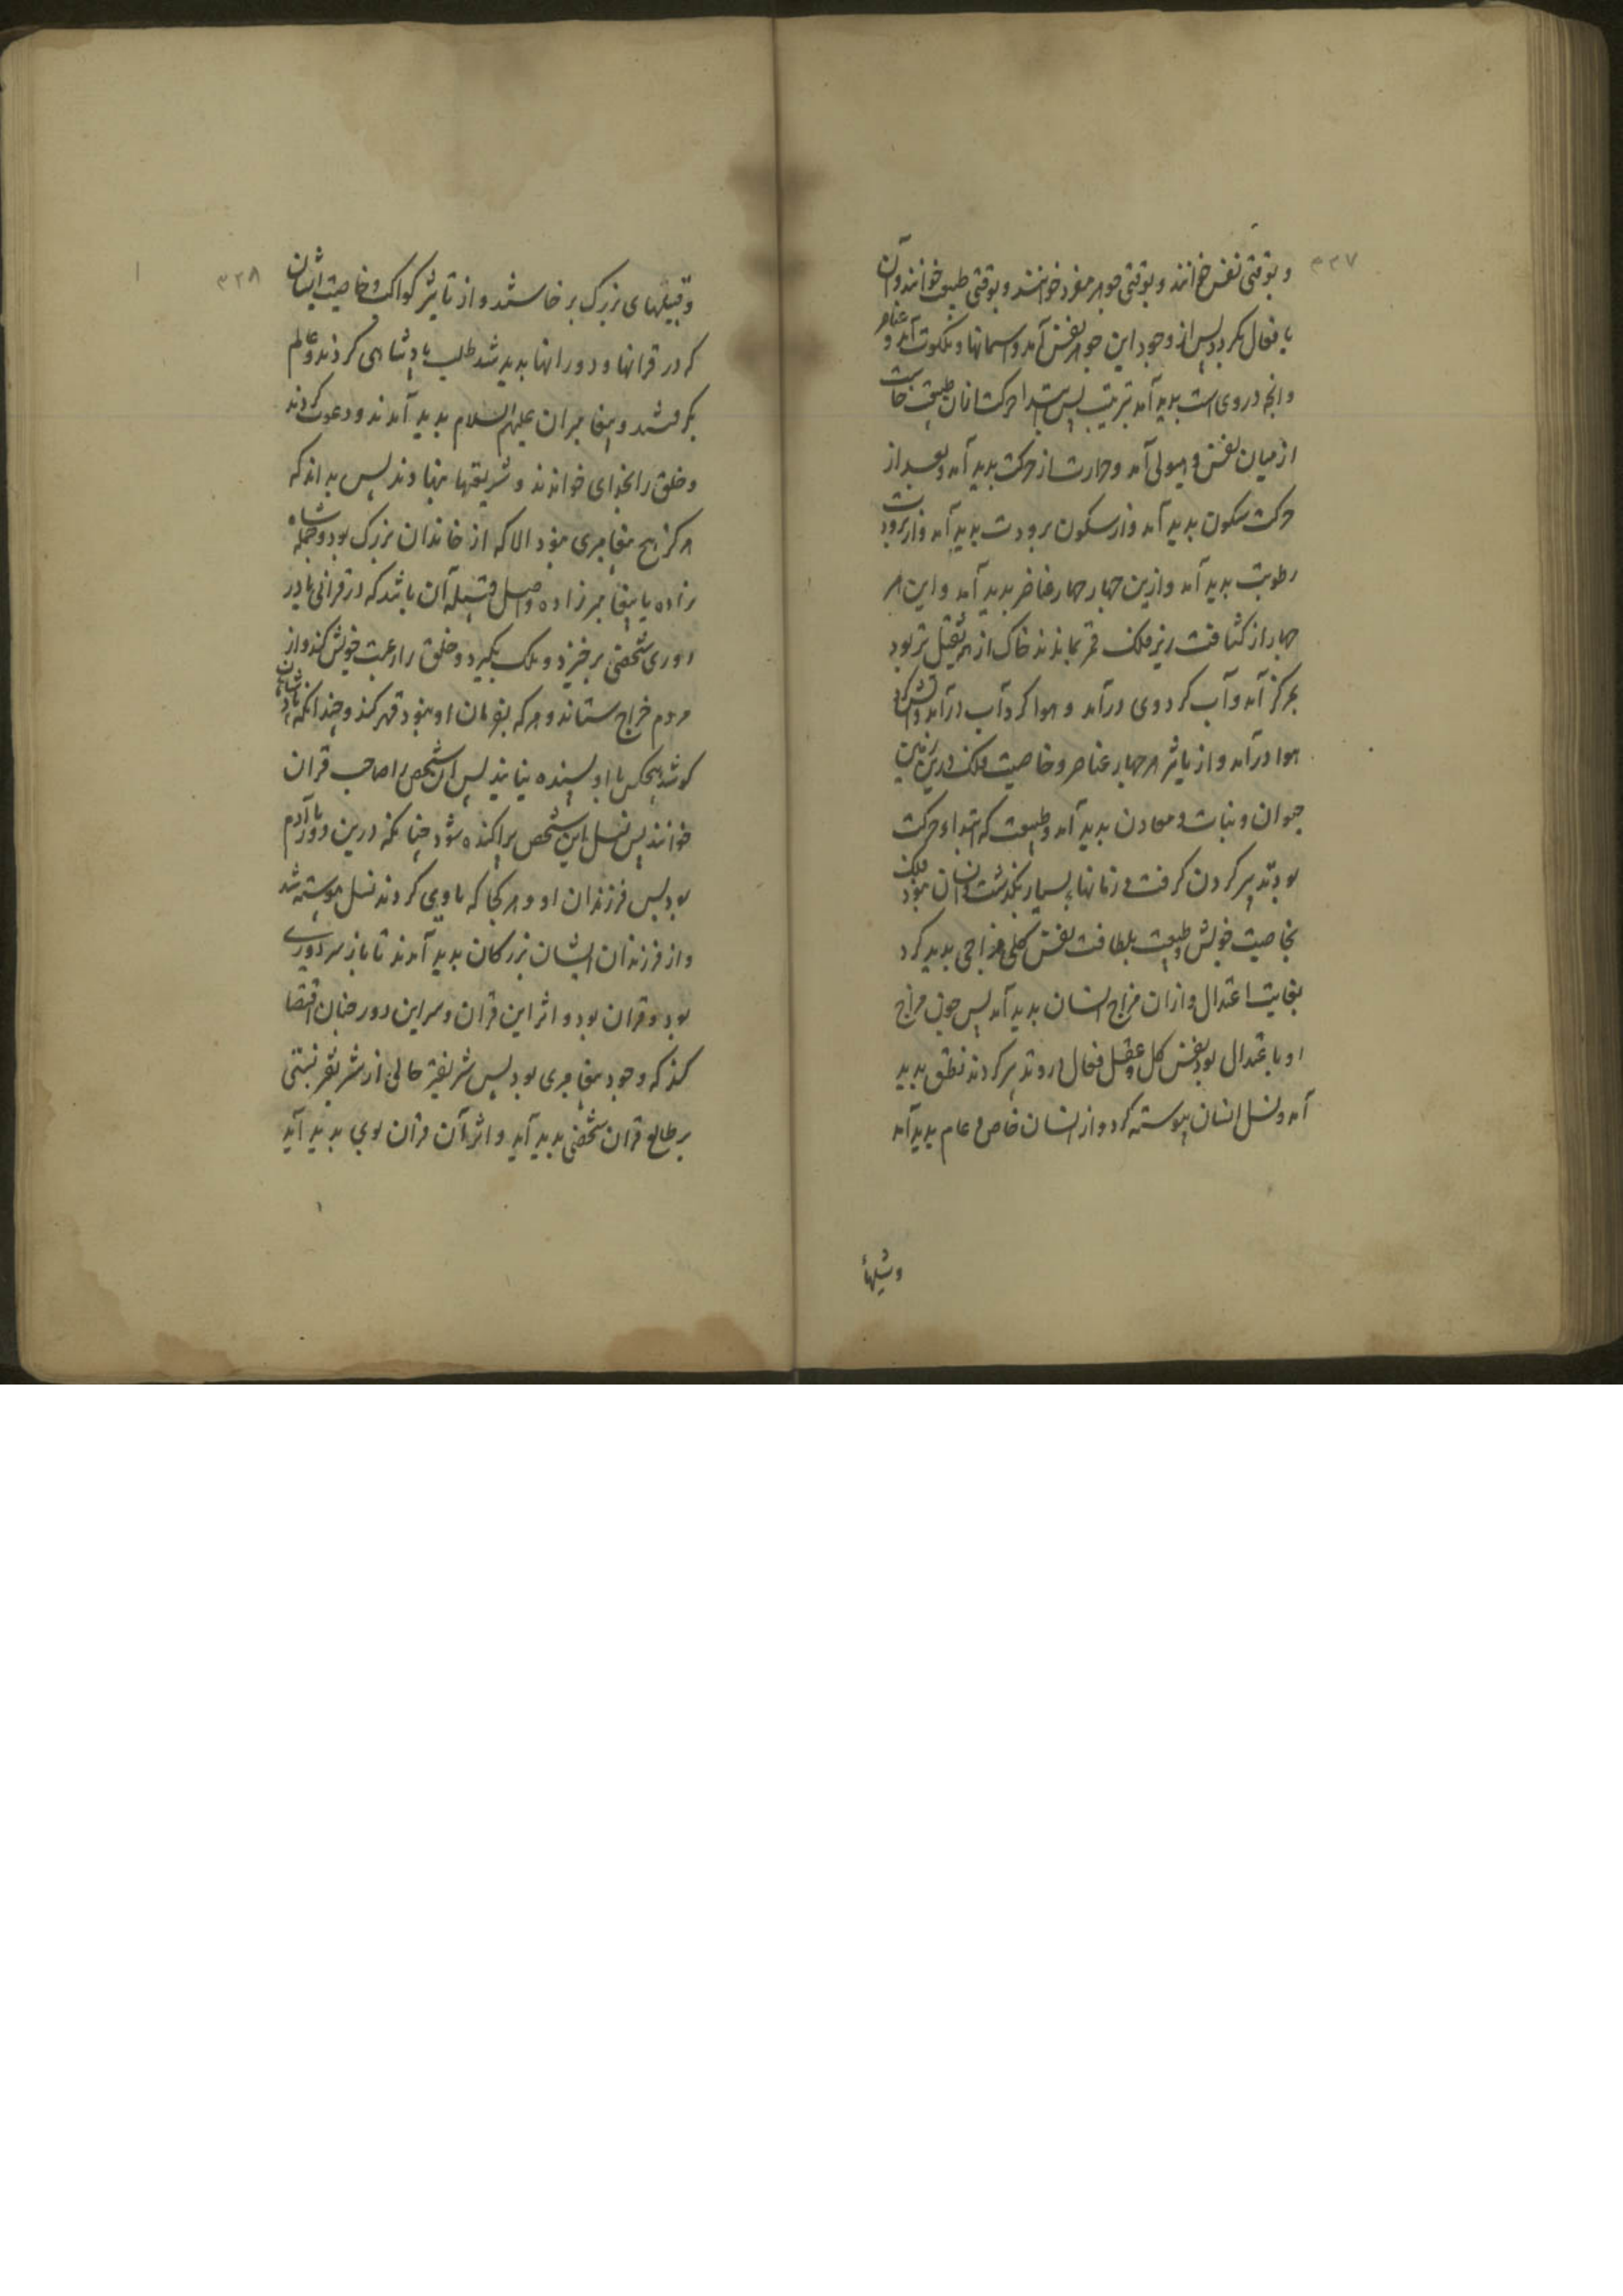 ۳۳۷
و بوقتی نفس خوانند و بوقتی جوهر مفرد خوانند و بوقتی طبع خوانند و آن
با فعال مکرر پس از وجود این جوهر نفس آمد و اسمانها و ملکوت آمد و عناصر
و انچه دروی است بدید آمد بترتیب پس ابتدا حرکت ازان طبیعت خاست
از میان نفس و هیولی آمد و حرارت از حرکت بدید آمد و بعد از
حرکت سکون بدید آمد و از سکون برودت بدید آمد و از برودت
رطوبت بدید آمد و ازین جهار جهار عناصر بدید آمد و این هر
جهار از کثافت زیر فلک قمر بماندند خاک از همه ثقیل تر بود
بمرکز آمد و آب کرد وی درآمد و هوا کرد آب درآمد و آتش کرد
هوا درآمد و از تاثیر هر جهار عناصر و خاصیت فلک درین زمین
حیوان و نبات و معادن بدید آمد و طبیعت که ابتداء حرکت
بود تدبیر کردن کرفت و زمانها بسیار بکذشت و انسان نبود فلک
بخاصیت خویش و طبیعت بلطافت نفس کلی مزاجی بدید کرد
بغایت اعتدال و ازان مزاج انسان بدید آمد پس چون مزاج
او با عتدال بود نفس کل و عقل فعال درو تدبیر کردند نطق بدید
آمد و نسل انسان پیوسته کرد و از انسان خاص و عام بدید آمد
۳۳۸
و قبیلهای بزرک بر خاستند و از تاثیر کواکب و خاصیت ایشان
که در قرانها و دورانها بدید شد طلب پادشاهی کردند و عالم
بکرفتند و پیغامبران علیهم السلام بدید آمدند و دعوت کردند
و خلق را بخدای خواندند و شریعتها بنهادند پس بدانکه
هرکز هیچ پیغامبری نبود الا که از خاندان بزرک بود و جمله شاه
زاده یا پیغامبر زاده و اصل قبیله آن باشد که در قرانی یا در
دوری شخصی برخیزد و ملک بکیرد و خلق را رعیت خویش کند و از
مردم خراج ستاند و هرکه بفرمان او نبود قهر کند و چندانکه پادشاهان
کوشند هیچکس با او بسنده نیایند پس آن شخص را صاحب قران
خوانند پس نسل این شخص پراکنده شود چنانکه درین دور ما آدم
بود پس فرزندان او و هر کجا که ماوی کردند نسل پیوسته شد
و از فرزندان ایشان بزرکان بدید آمدند تا باز سر دوری
بود و قران بود و اثر این قران و سر این دور چنان اقتضا
کند که وجود پیغامبری بود پس شریفتر حالی از شریفتر نسبتی
بر طالع قران شخصی بدید آید و اثر آن قران بوی بدید آید